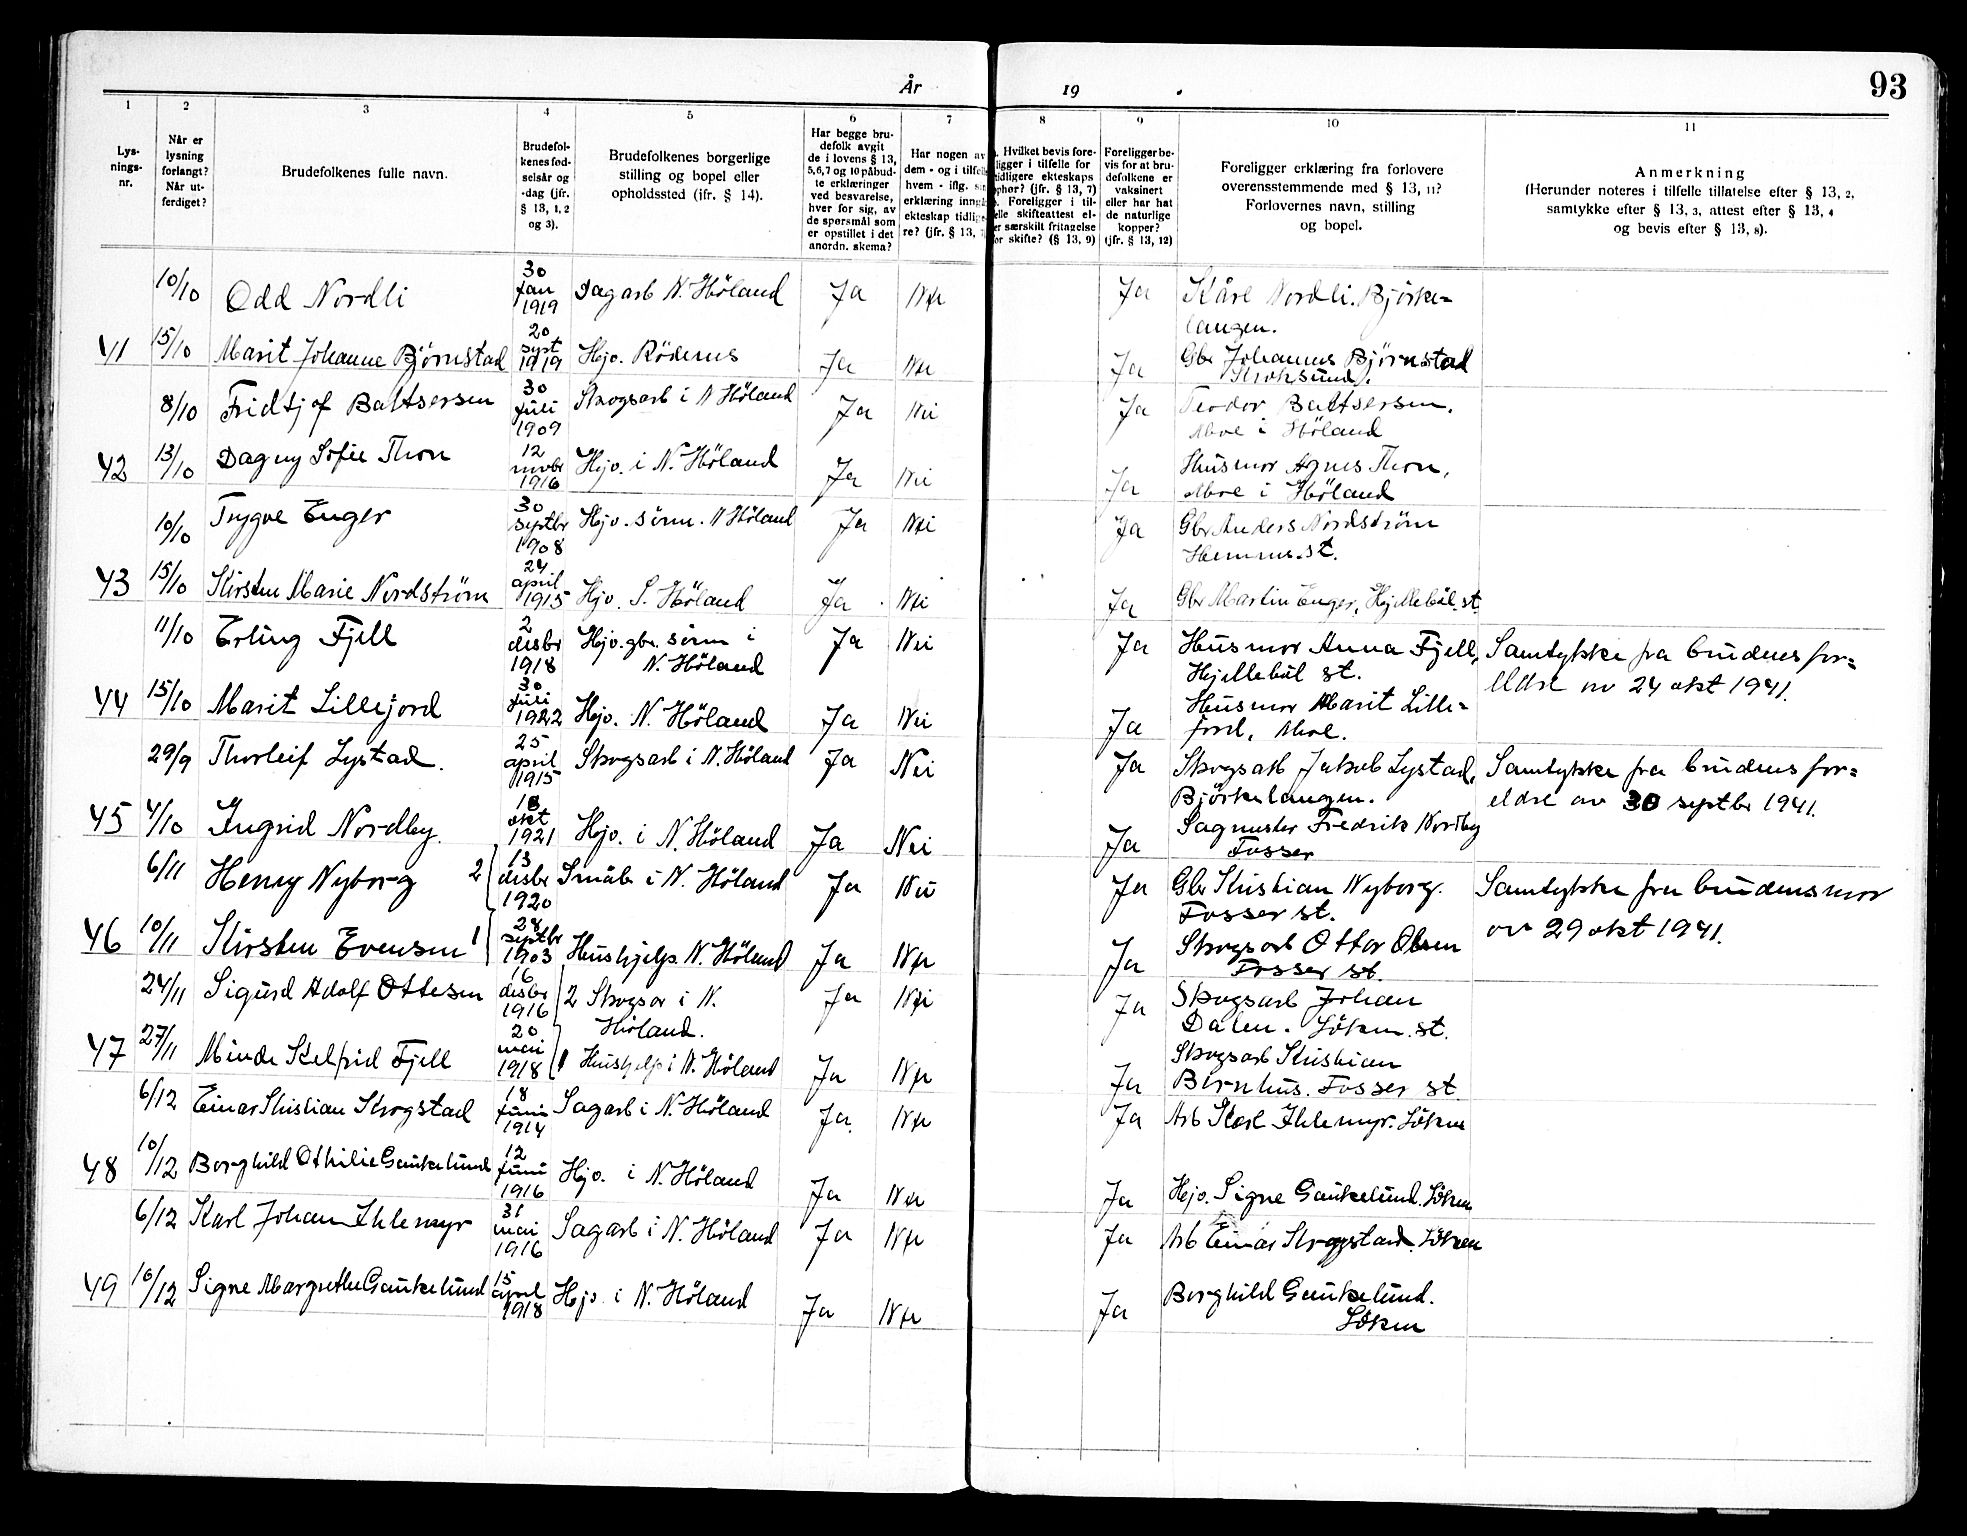 År 19 . 93
1 2 3 4 5 6 7 8 9 10 11
Lys-
nings-
nr.
Når er
lysning
forlangt?
Når ut-
ferdiget?
Brudefolkenes fulle navn.
Brudefol-
kenes fød-
selsår og
-dag (jfr.
§ 13, 1, 2
og 3).
Brudefolkenes borgerlige
stilling og bopel eller
opholdssted (jfr. § 14).
Har begge bru-
defolk avgit
de i lovens § 13,
5,6,7 og 10 påbud-
te erklæringer
ved besvarelse,
hver for sig, av
de spørsmål som
er opstillet i det
anordn. skema?
Har nogen av
dem - og i tilfelle
hvem - iflg. sin
erklæring inngått
ekteskap tidlige-
re? (jfr. § 13,
Hvilket bevis fore-
ligger i tilfelle for
tidligere ekteskaps
ophør? (jfr. § 13, 7)
Foreligger i til-
felle skifteattest el-
er særskilt fritagelse
for skifte? (§ 13, 9)
Foreligger be-
vis for at bru-
defolkene er
vaksinert
eller har hat
de naturlige
kopper?
(jfr. § 13, 12)
Foreligger erklæring fra forlovere
overensstemmende med § 13, 11?
Forlovernes navn, stilling
og bopel.
Anmerkning
(Herunder noteres i tilfelle tillatelse efter § 13, 2,
samtykke efter § 13, 3, attest efter § 13, 4
og bevis efter § 13, 8).
10/10 Odd Nordli 30 Jan 1919 Dagarb N. Höland Ja Nei Ja Kåre Nordli. Bjørke=
langen.
41 15/10 Marit Johanne Bjørnstad 20 sept 1919 Hjv. Rödenes Ja Nei Ja Gbr Johannes Bjørnstad
Kroksund.
8/10 Fridtjof Baltsersen 30 Juli 1909 Skogsarb i N Höland Ja Nei Ja Teodor Baltsersen.
Moe i Höland
42 13/10 Dagny Sofie Thon 12 novbr 1916 Hjv. i N. Höland Ja Nei Ja Husmor Agnes Thon,
Moe i Höland
10/10 Trygve Enger 30 septbr 1908 Hjv. sönn. N Höland Ja Nei Ja Gbr Anders Nordström
Hemnes st.
43 15/10 Kirsten Marie Nordström 24 april 1915 Hjv. S. Höland Ja Nei Ja Gbr Martin Enger, Hjelleböl st.
11/10 Erling Fjell 2 desbr 1918 Hjv. gbr. sönn i
N. Höland Ja Nei Ja Husmor Anna Fjell,
Hjelleböl st. Samtykke fra brudens for=
eldre av 24 okt 1941.
44 15/10 Marit Lillejord 30 Juli 1922 Hjv. N. Höland Ja Nei Ja Husmor Marit Lille=
jord, Moe.
29/9 Thorleif Lystad. 25 april 1915 Skogsarb i N. Höland Ja Nei Ja Skogsarb Jakob Lystad,
Bjørkelangen. Samtykke fra brudens for=
eldre av 30 septbr 1941.
45 4/10 Ingrid Nordby. 18 okt 1921 Hjv. i N. Höland Ja Nei Ja Sagmester Fredrik Nordby
Fosser
6/11 Henry Nyborg 2 13 desbr 1920 Småbr i N. Höland Ja Nei Ja Gbr Kristian Nyborg.
Fosser st. Samtykke fra brudens mor
av 29 okt 1941.
46 10/11 Kirsten Evensen 1 28 septbr 1903 Hushjelp. N. Höland Ja Nei Ja Skogsarb Ottar Olsen
Fosser st.
24/11 Sigurd Adolf Ottesen 16 desbr 1916 2 Skogsar i N.
Höland. Ja Nei Ja Skogsarb Johan
Dalen. Löken st.
47 27/11 Minda Kelfrid Fjell 20 mai 1918 1 Hushjelp i N. Höland Ja Nei Ja Skogsarb Kristian
Bernhus. Fosser st.
6/12 Einar Kristian Skogstad 18 Juni 1914 Sagarb i N. Höland Ja Nei Ja Arb Karl Ihlemyr. Löken
48 10/12 Borghild Othilie Gaukelund 12 Juni 1916 Hjv. i N. Höland Ja Nei Ja Hjv. Signe Gaukelund. Löken
6/12 Karl Johan Ihlemyr 31 mai 1916 Sagarb i N. Höland Ja Nei Ja Arb Einar Skogstad. Löken
49 10/12 Signe Margrethe Gaukelund 15 april 1918 Hjv. i N. Höland Ja Nei Ja Borghild Gaukelund.
Löken